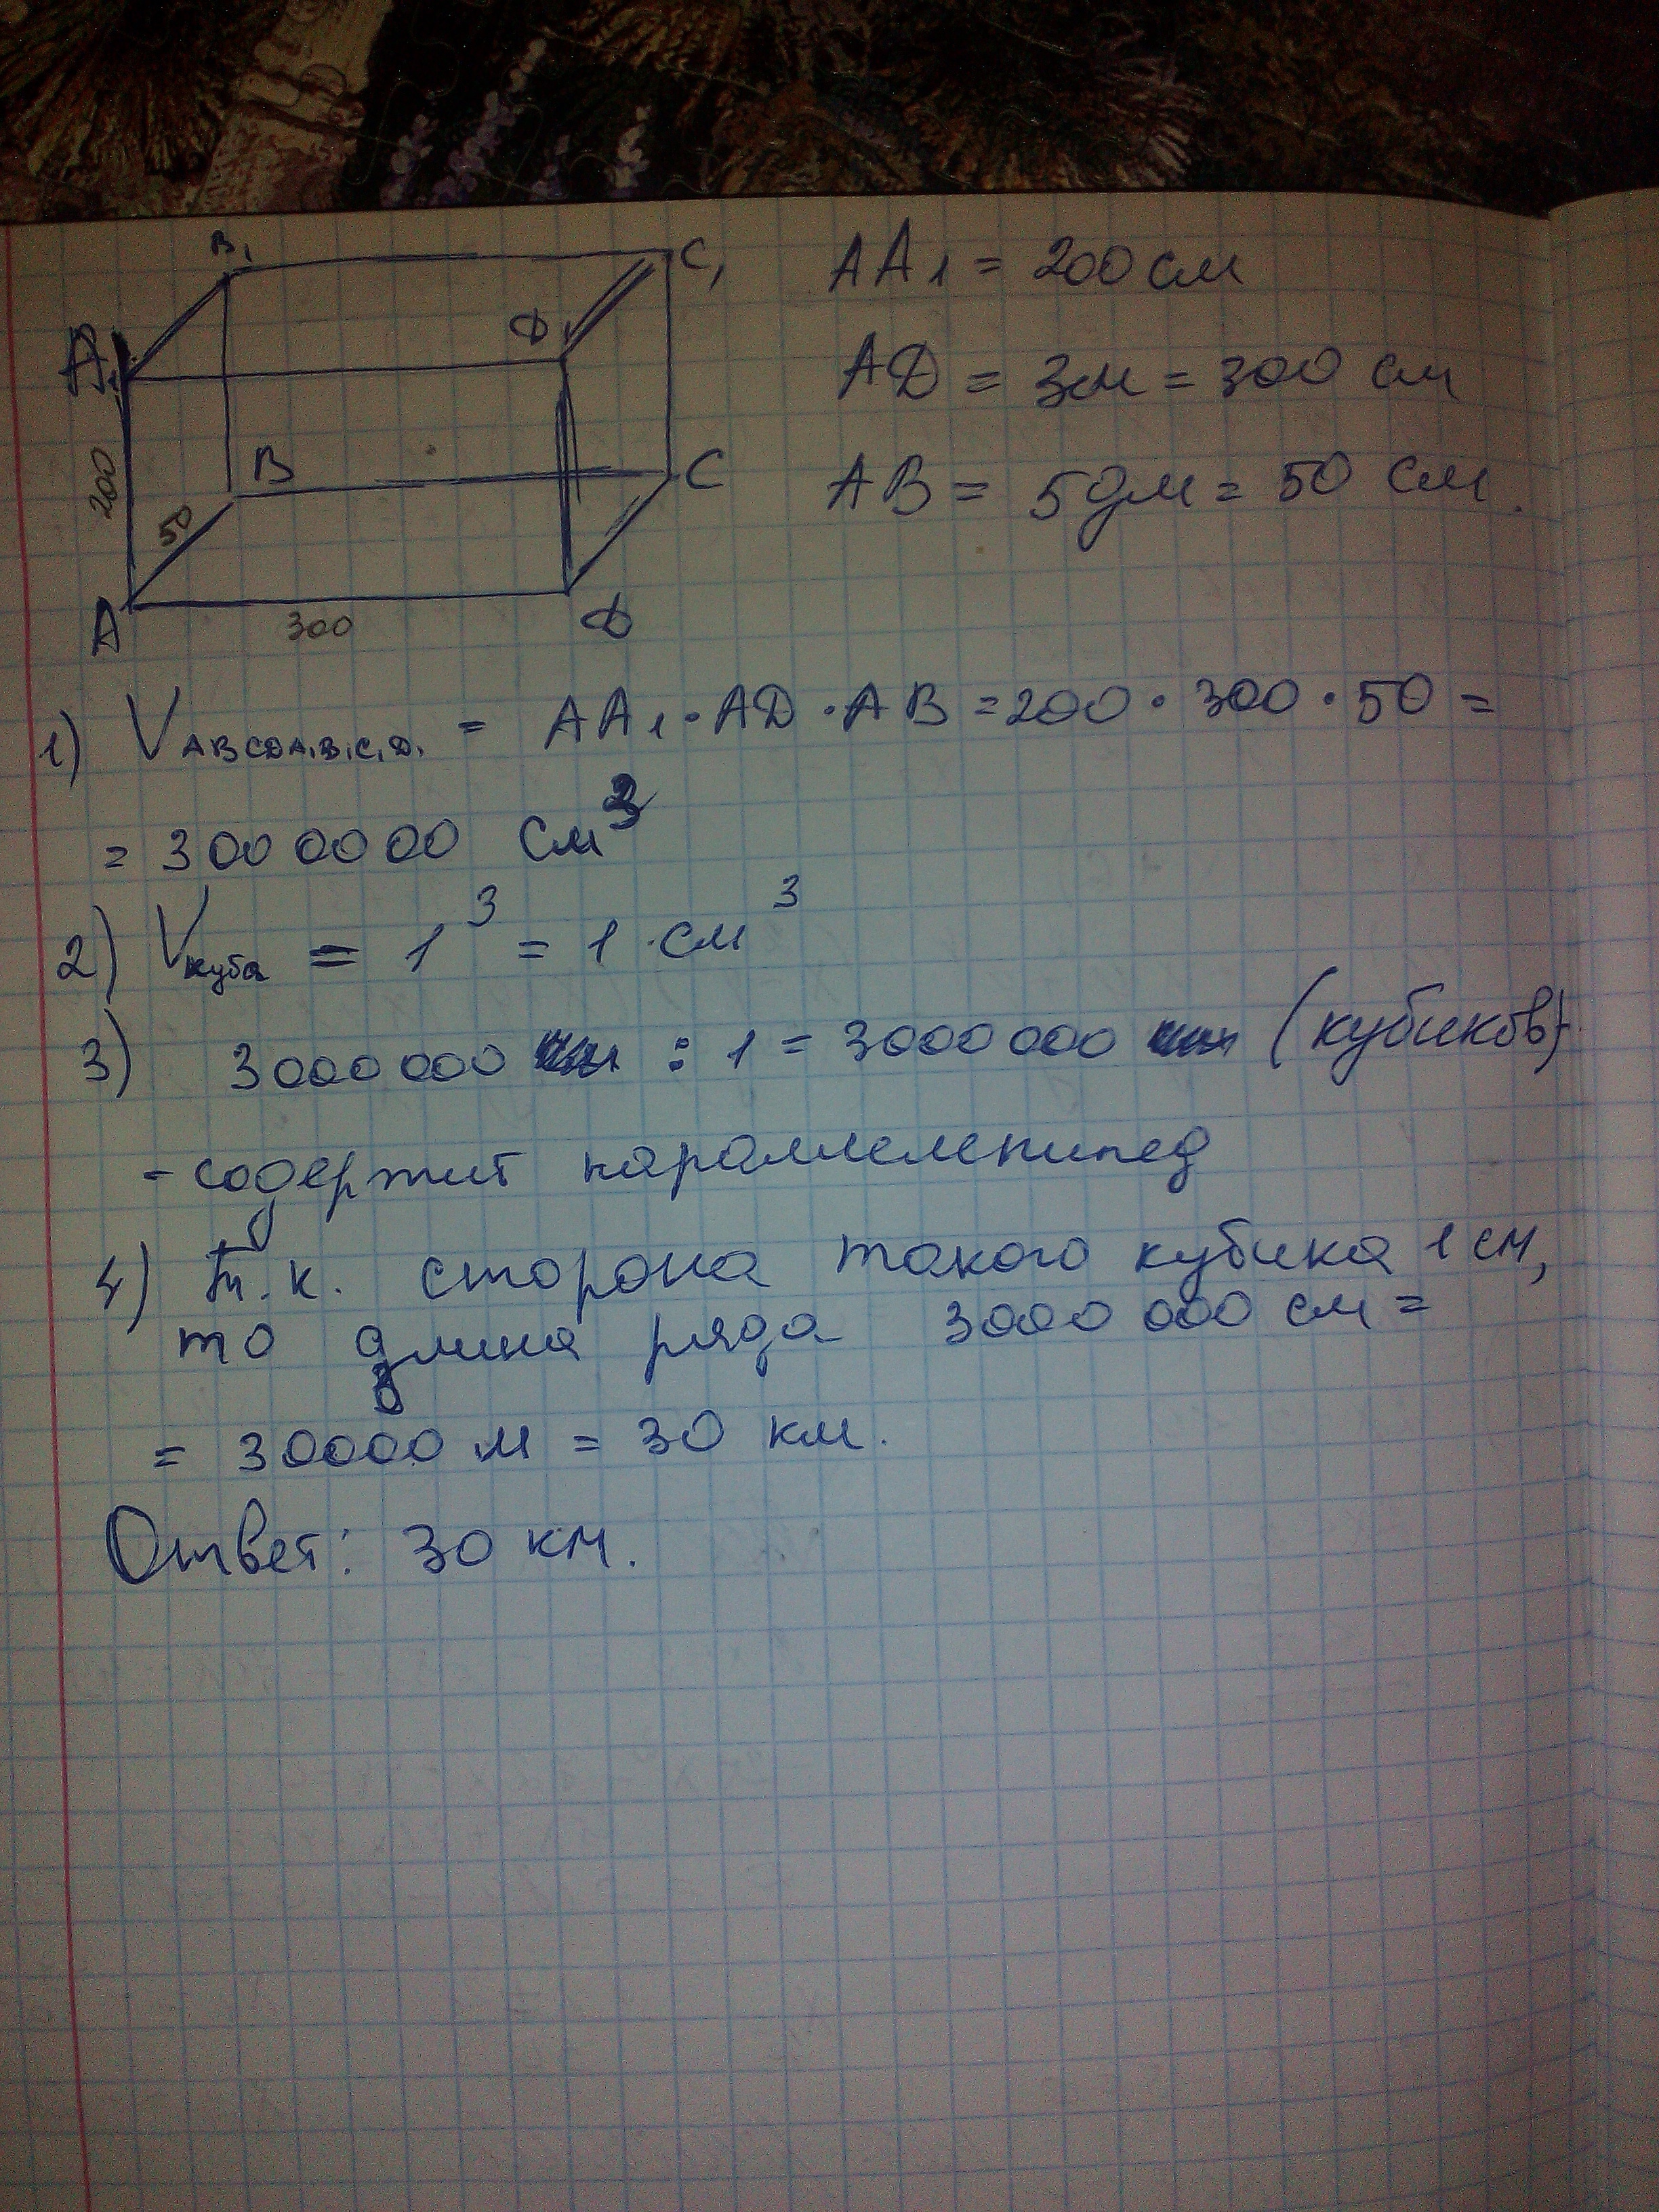 B₁
C₁
AA₁ = 200 см
A₁
D₁
AD = 3м = 300 см
200
50
B
C
AB = 5дм = 50 см.
A
300
D
1) V ABCDA₁B₁C₁D₁ = AA₁ · AD · AB = 200 · 300 · 50 =
= 3000000 см³
2) Vкуба = 1³ = 1 см³
3) 3000 000 : 1 = 3000 000 (кубиков)
- содержит параллелепипед
4) Т.к. сторона такого кубика 1 см,
то длина ряда 3000 000 см =
= 30000 м = 30 км.
Ответ: 30 км.